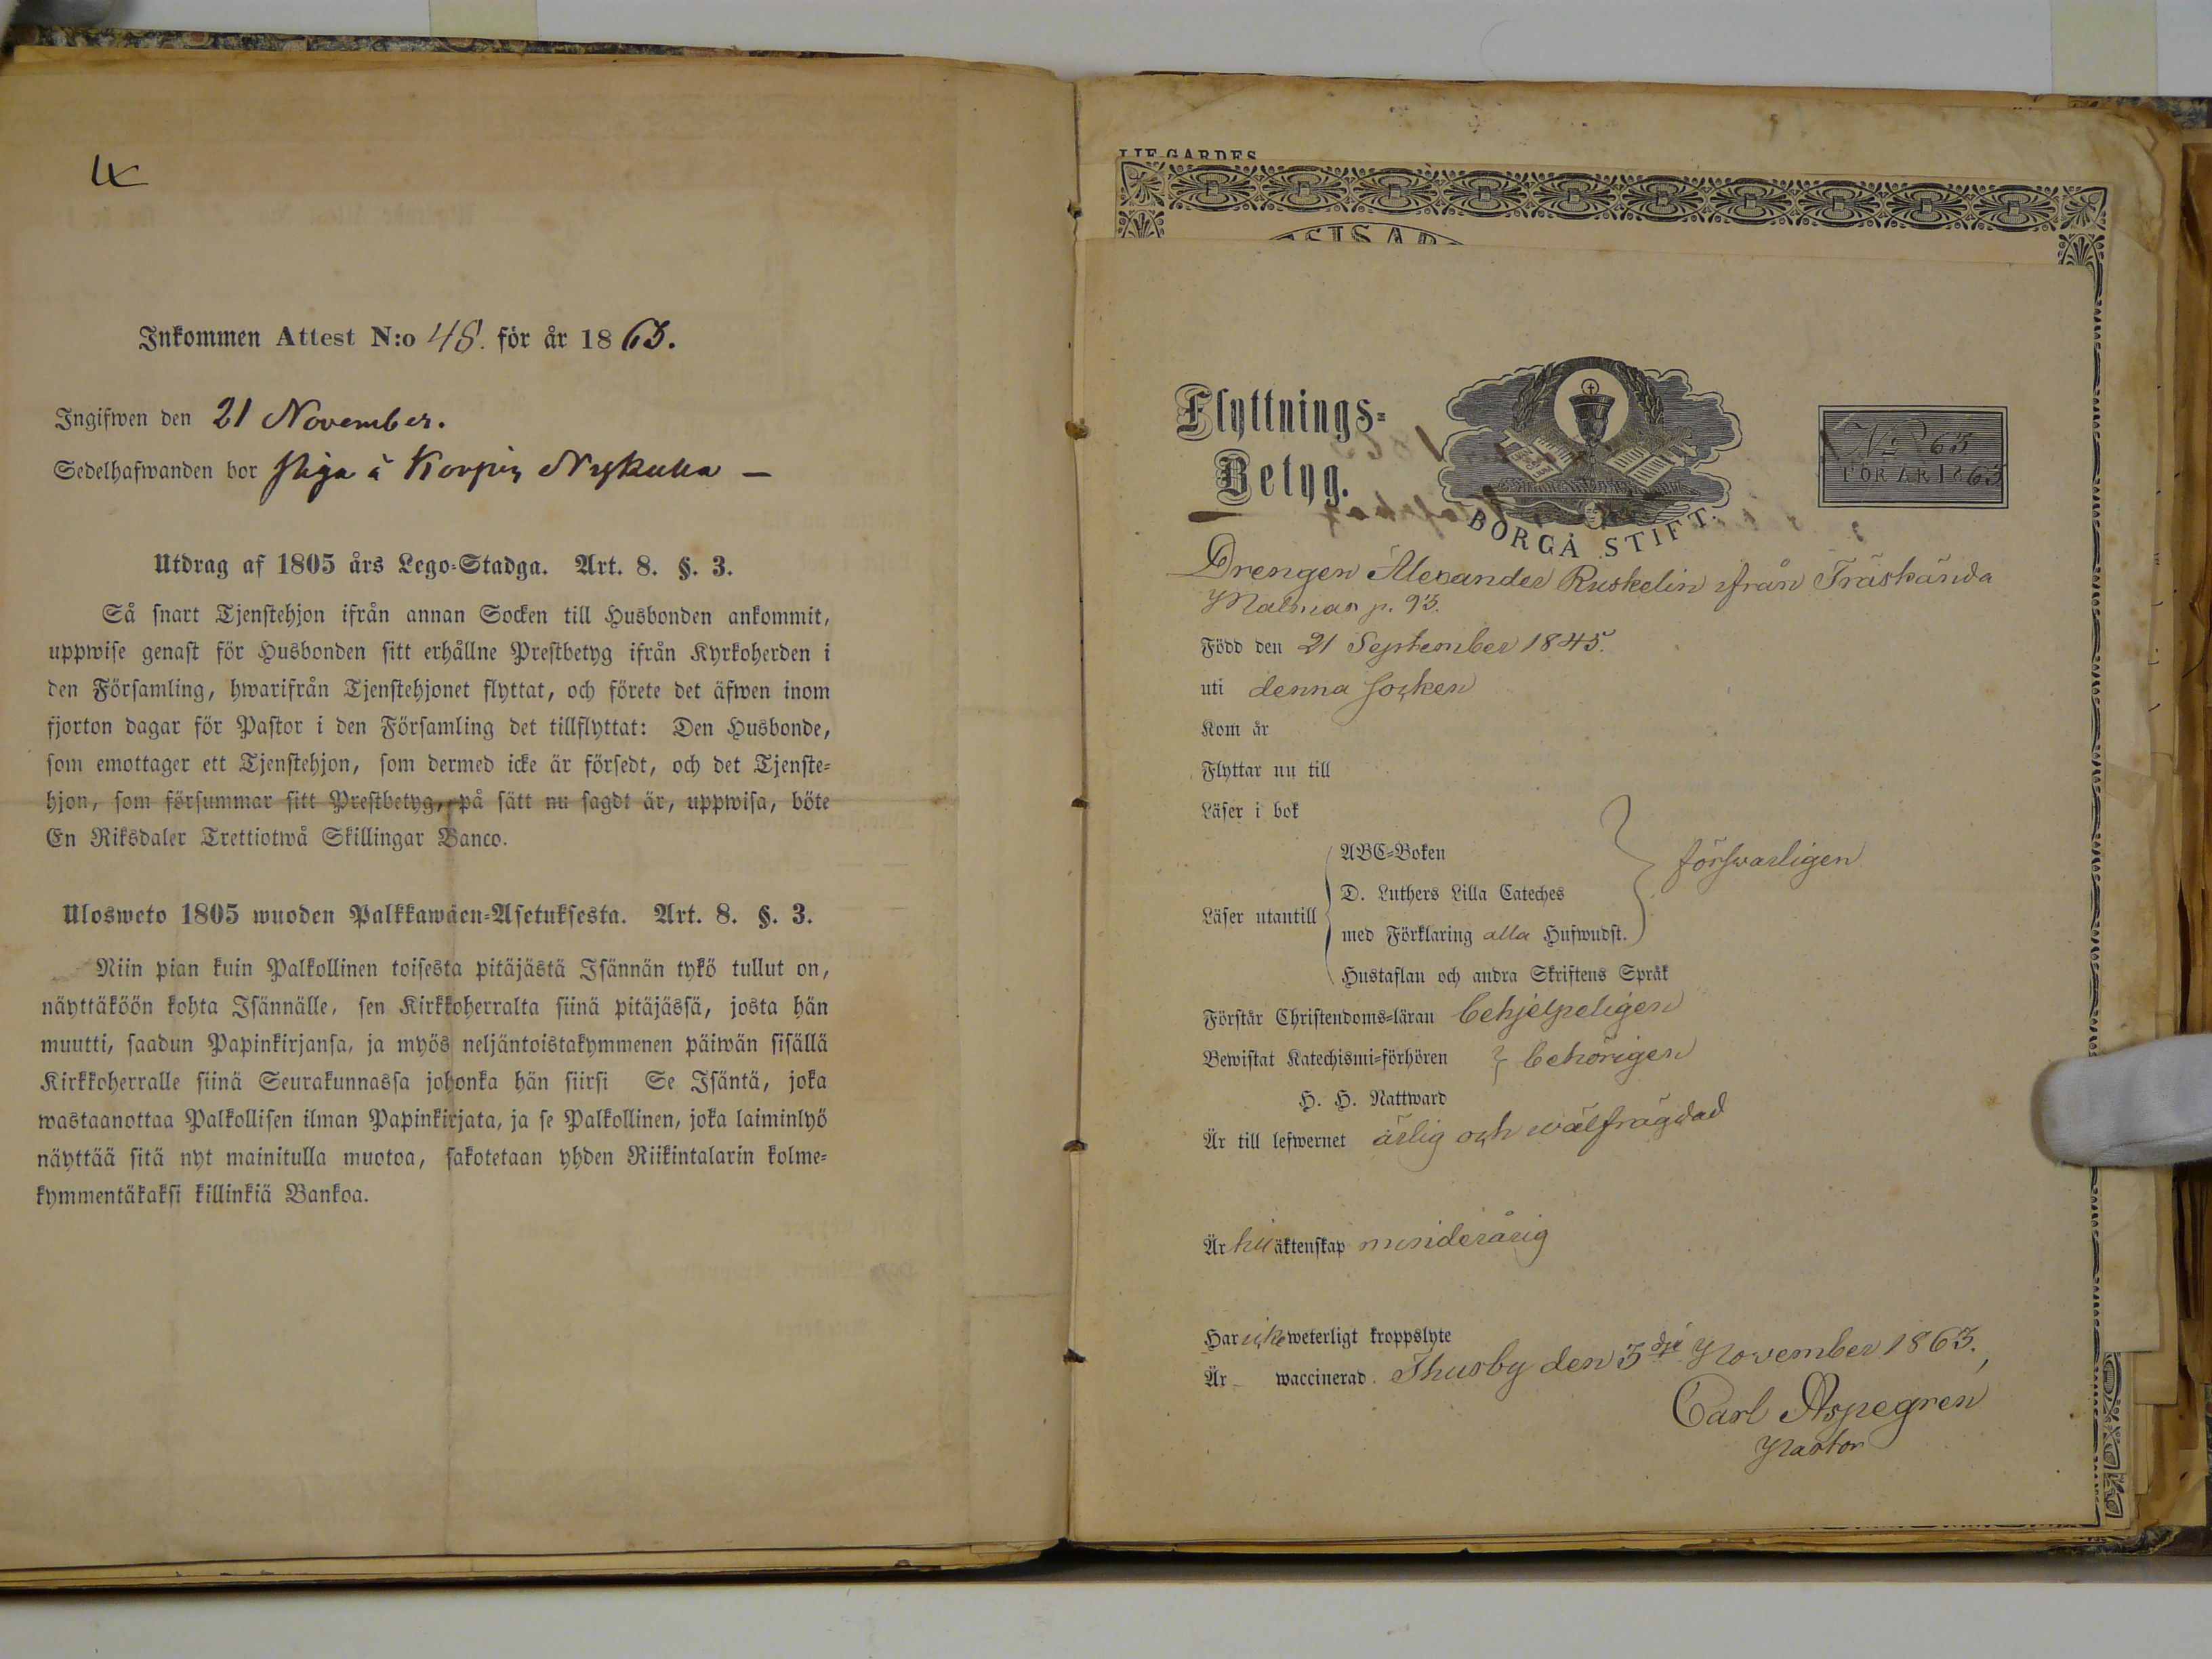 Inkommen Attest N:o 48. för år 1863.
Ingifwen den 21 November.
Sedelhafwanden bor piga å Korpis Nykulla —
Utdrag af 1805 års Lego-Stadga. Art. 8. §. 3.
Så snart Tjenstehjon ifrån annan Socken till Husbonden ankommit,
uppwise genast för Husbonden sitt erhållne Prestbetyg ifrån Kyrkoherden i
den Församling, hwarifrån Tjenstehjonet flyttat, och förete det äfwen inom
fjorton dagar för Pastor i den Församling det tillflyttat: Den Husbonde,
som emottager ett Tjenstehjon, som dermed icke är försedt, och det Tjenste-
hjon, som försummar sitt Prestbetyg, på sätt nu sagdt är, uppwisa, böte
En Riksdaler Trettiotwå Skillingar Banco.
Ulosweto 1805 wuoden Palkkawäen-Asetuksesta. Art. 8. §. 3.
Niin pian kuin Palkollinen toisesta pitäjästä Isännän tykö tullut on,
näyttäköön kohta Isännälle, sen Kirkkoherralta siinä pitäjässä, josta hän
muutti, saadun Papinkirjansa, ja myös neljäntoistakymmenen päiwän sisällä
Kirkkoherralle siinä Seurakunnassa johonka hän siirsi Se Isäntä, joka
wastaanottaa Palkollisen ilman Papinkirjata, ja se Palkollinen, joka laiminlyö
näyttää sitä nyt mainitulla muotoa, sakotetaan yhden Riikintalarin kolme-
kymmentäkaksi killinkiä Bankoa.
LIF GARDES
Flyttnings-
Betyg.
BORGÅ STIFT.
No 63
FÖR ÅR 1863
Drengen Alexander Ruskelin ifrån Träskända
Malmas p. 93.
Född den 21 September 1845.
uti denna socken
Kom år
Flyttar nu till
Läser i bok
Läser utantill
ABC-Boken
D. Luthers Lilla Cateches
med Förklaring alla Hufwudst.
Hustaflan och andra Skriftens Språk
förswarligen
Förstår Christendoms-läran behjelpeligen
Bewistat Katechismi-förhören behörigen
H. H. Nattward
Är till lefwernet ärlig och wälfrägdad
Är till äktenskap minderårig
Har icke weterligt kroppslyte
Är waccinerad. Thusby den 3dje November 1863.
Carl Aspegren
Pastor